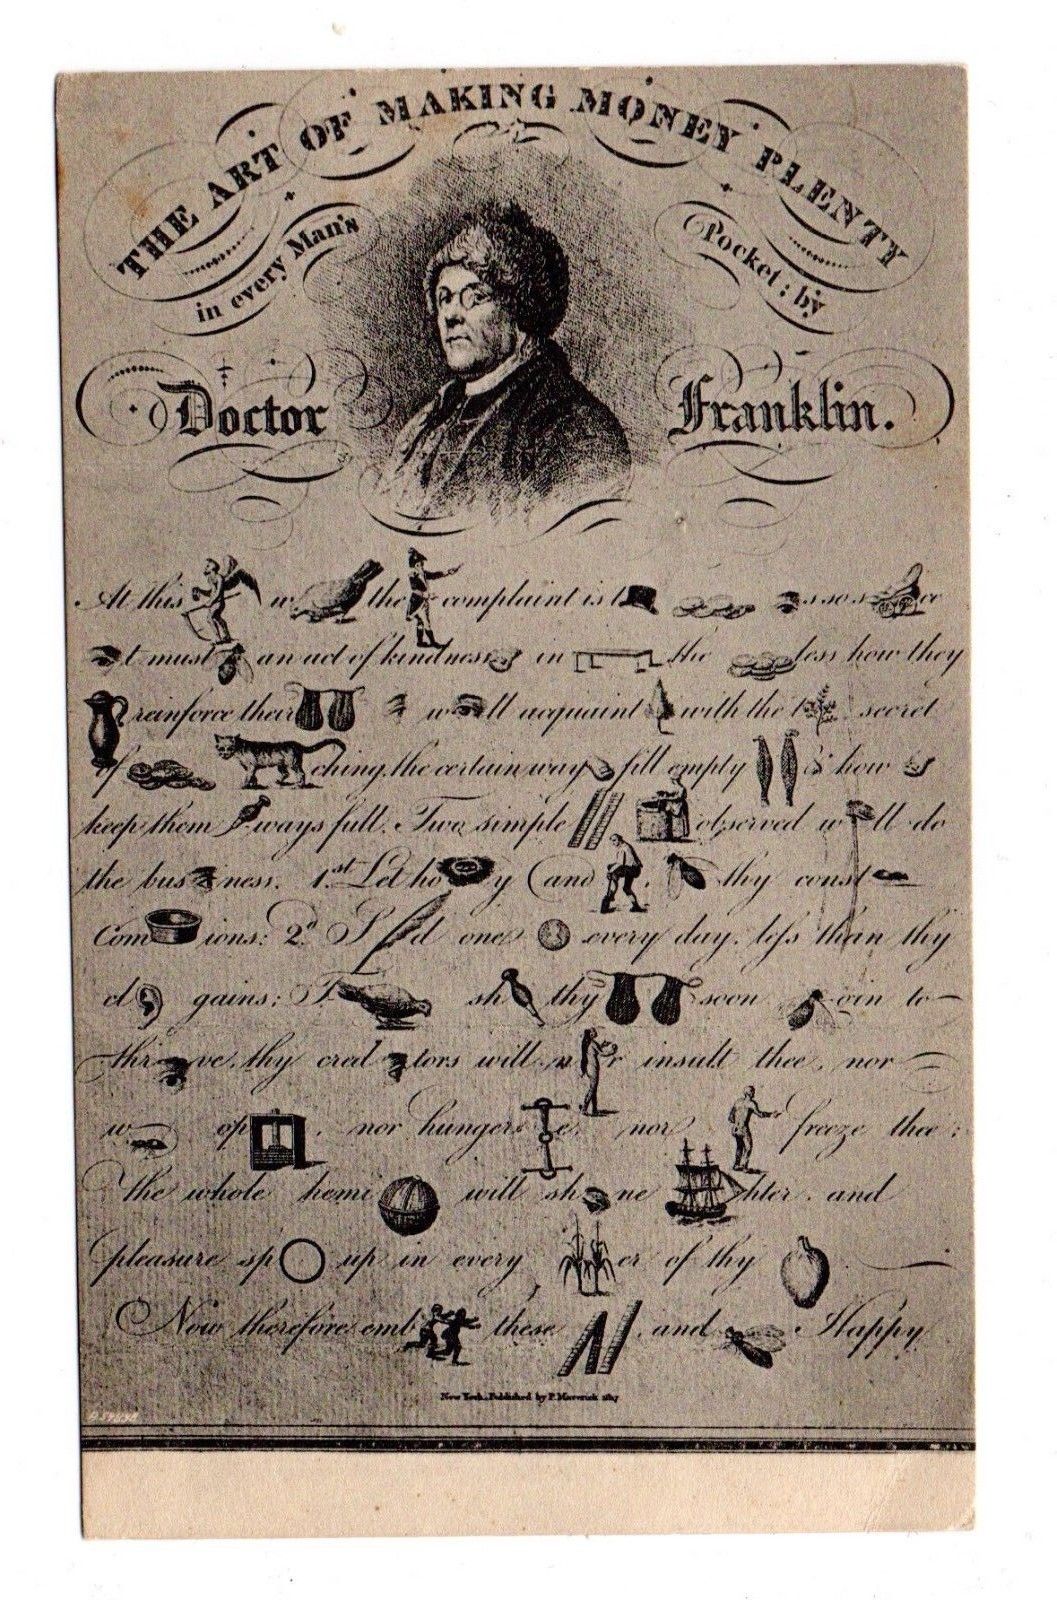 THE ART OF MAKING MONEY PLENTY
in every Man's Pocket; by
Doctor Franklin.
At this w the complaint is t s so s ce
t must an act of kindness in the less how they
reinforce their w ll acquaint with the t secret
of ching, the certain way fill empty is how
keep them ways full. Two simple observed w ll do
the bus ness. 1st. Let ho y and thy const
Com ions: 2d. S d one every day, less than thy
cl gains; T sh thy soon gin to
thr ve, thy cred tors will n r insult thee, nor
w op , nor hunger e, nor freeze thee:
The whole hemi will sh ne hter, and
pleasure sp up in every er of thy
Now therefore emb these , and Happy
New York, Published by P. Maverick 1817